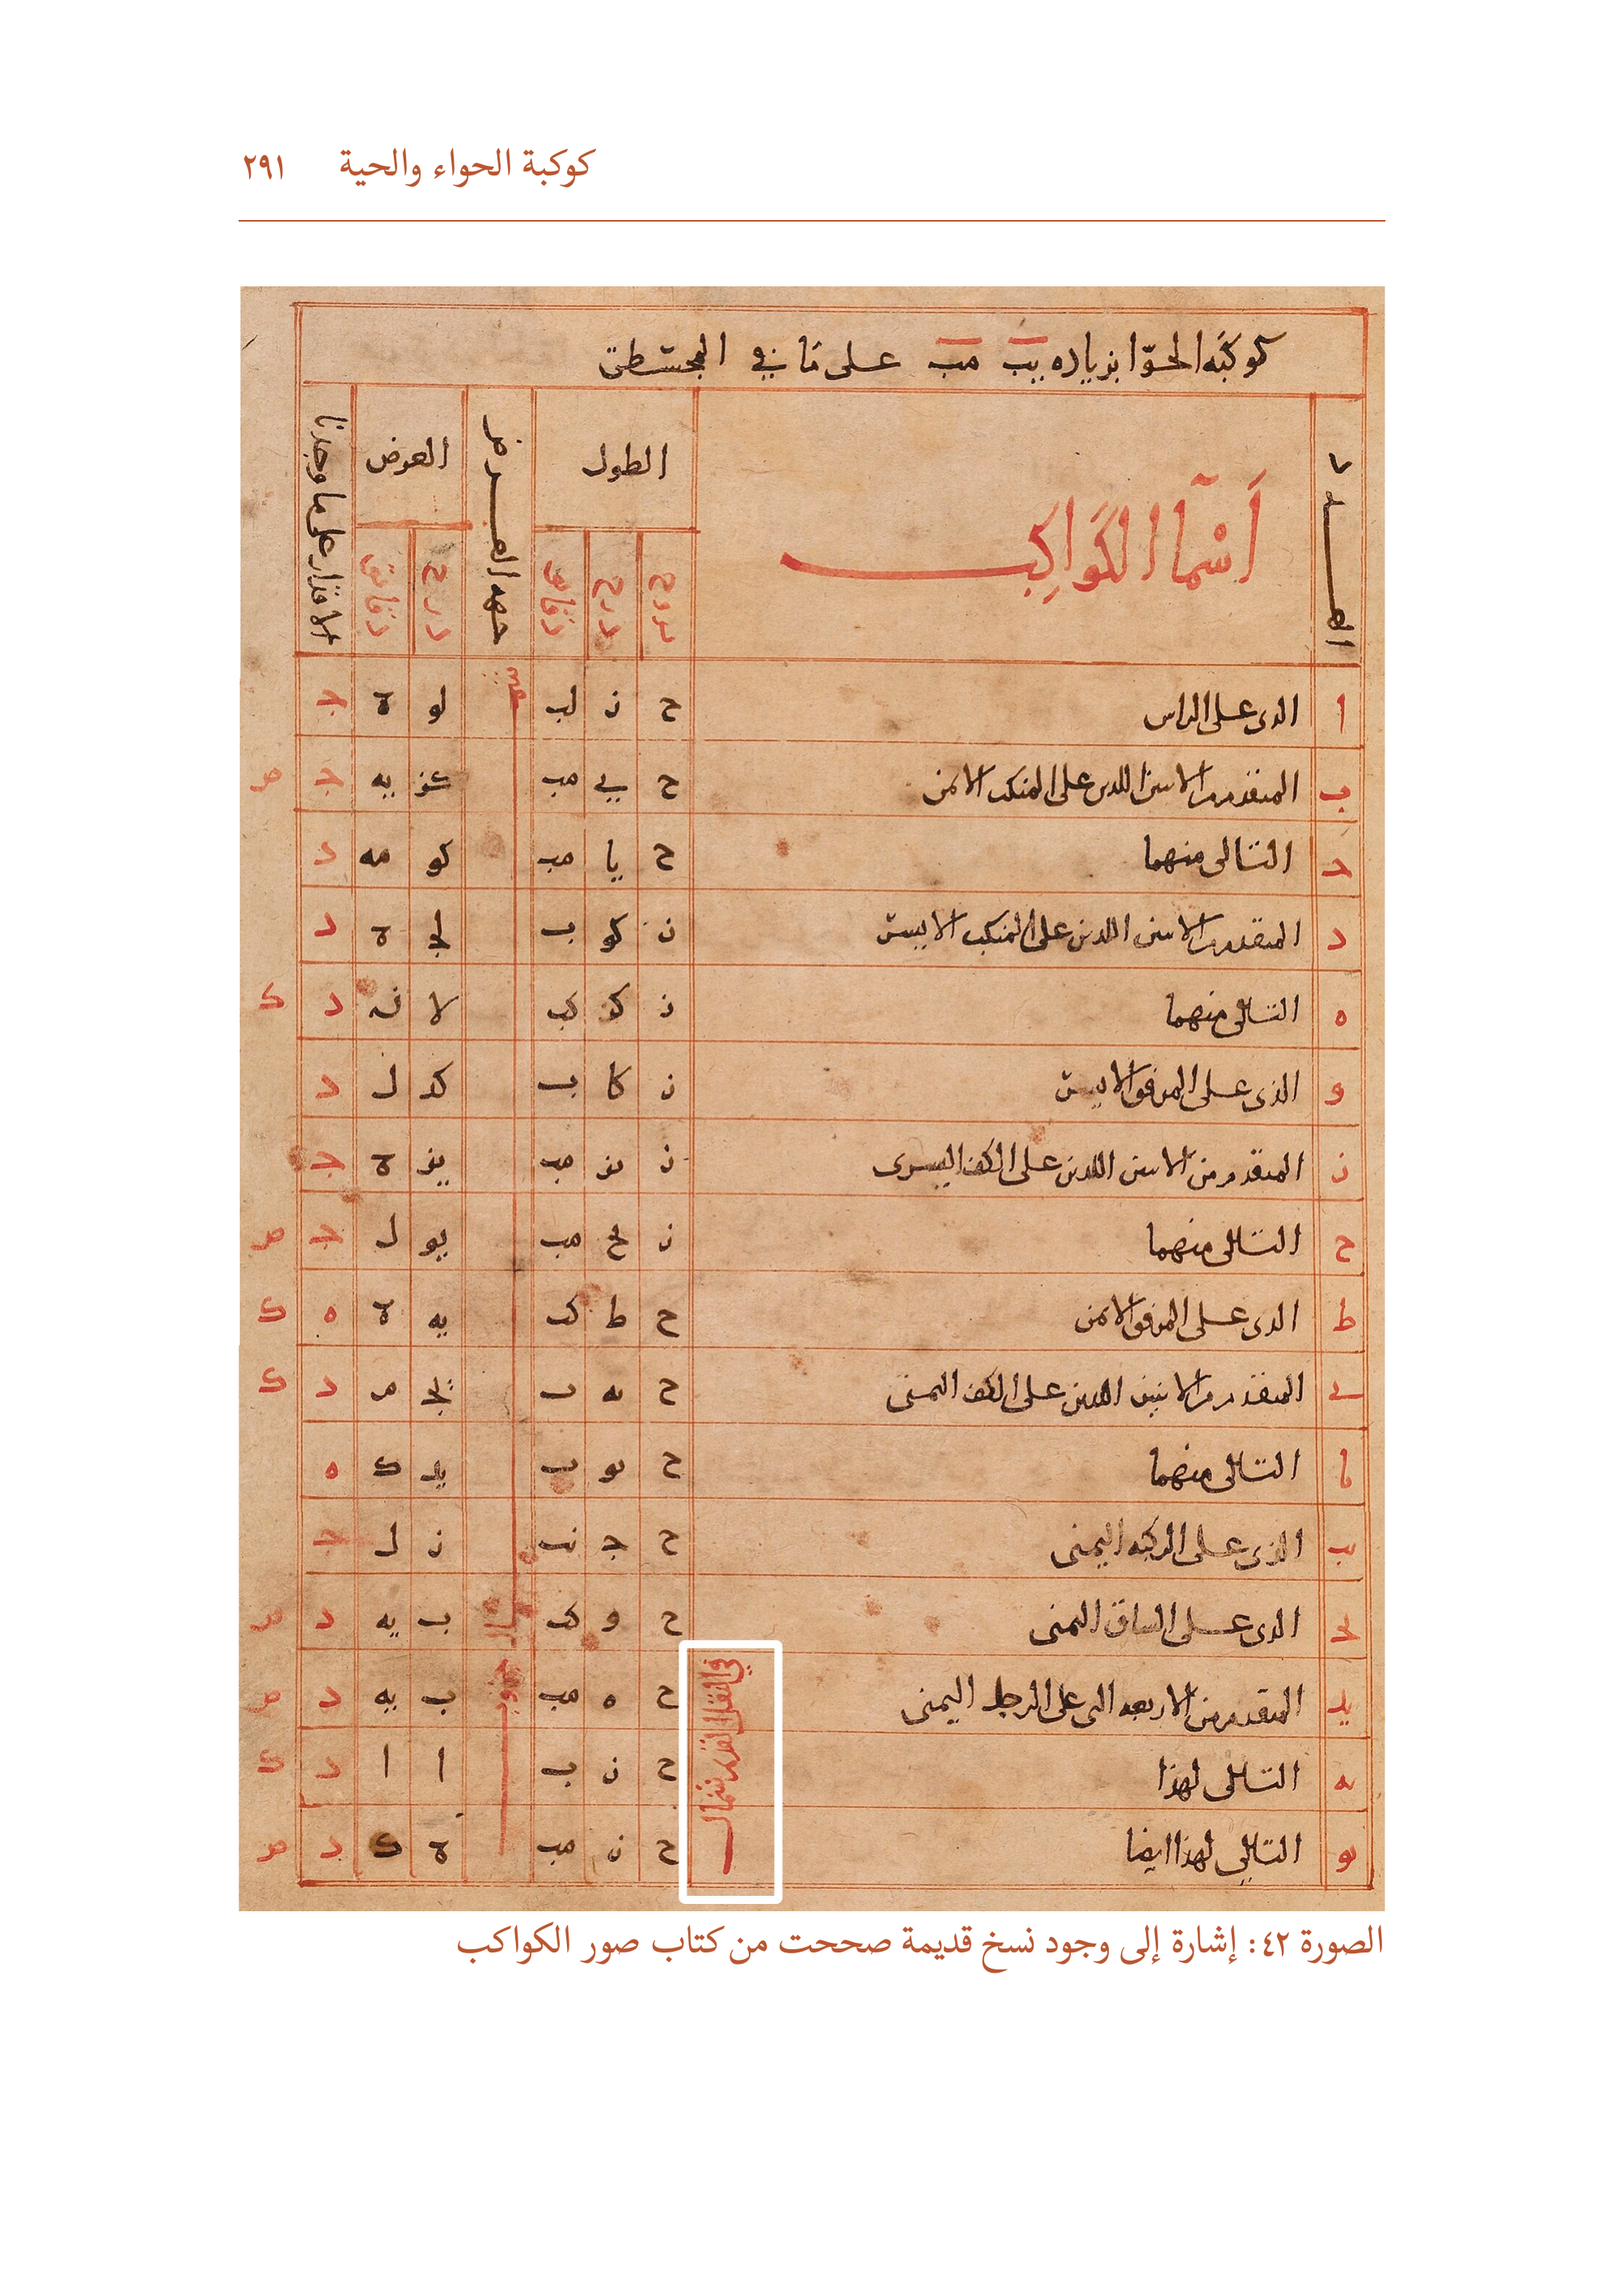 كوكبة الحواء والحية ٢٩١
كوكبه الحوّا بزياده يب مب على ما في المجسطى
العدد
أسما الكواكب
الطول
بروج درج دقائق
جهه العرض
العرض
درج دقائق
الاقدار على ما وجدنا
ا الدى على الراس ح ز لب لو ة ج
ب المتقدم من الاسىن اللدىن على المنكب الاىمن ح يب مب كز يه ج ص
ج التالى منهما ح يا مب كو مه د
د المتقدم من الاسىن اللدىن على المنكب الاىسر ز كو ب لج ة د
ه التالى منهما ز كز كب لا ن د ك
و الذى على المرفق الاىسر ز كا ب كد ل د
ز المتقدم من الاسىن اللدىن على الكف اليسرى ز يز مب يز ة ج
ح التالى منهما ز يح مب يو ل ج ص
ط الدى على المرفق الاىمن ح ط كب يه ة ه ك
ى المتقدم من الاثنين اللدىن على الكف اليمنى ح كه ب يج م د ك
يا التالى منهما ح كو ب يد ك ه
يب الذى على الركبه اليمنى ح ج نب ز ل ج
يج الدى على الساق اليمنى ح و كب ب يه د ص
يد المتقدم من الاربعه التى على الرجل اليمنى ح ه مب ب يه د ص
يه التالى لهذا ح ز ب ا ا د ك
يو التالى لهذا ايضا ح ز مب ة ك د ص
شمال
جنوب
في النقل القديم شمال
الصورة ٤٢: إشارة إلى وجود نسخ قديمة صححت من كتاب صور الكواكب